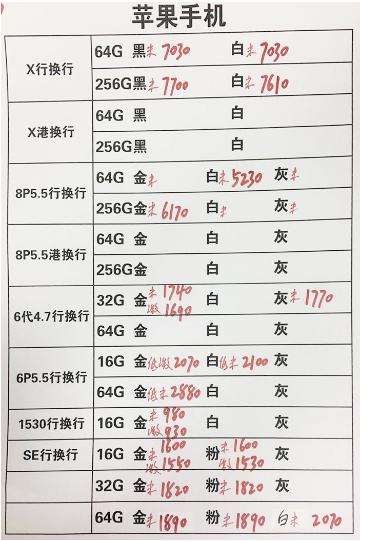 苹果手机
X行换行 64G 黑 未 7030 白 未 7030
256G 黑 未 7700 白 未 7610
X港换行 64G 黑 白
256G 黑 白
8P5.5行换行 64G 金 未 白 未 5230 灰 未
256G 金 未 6170 白 未 灰 未
8P5.5港换行 64G 金 白 灰
256G 金 白 灰
6代4.7行换行 32G 金 未 1740 激 1690 白 灰 未 1770
64G 金 白 灰
6P5.5行换行 16G 金 低激 2070 白 低未 2100 灰
64G 金 低未 2880 白 灰
1530行换行 16G 金 未 980 激 930 白 灰
SE行换行 16G 金 未 1600 激 1550 粉 未 1600 激 1530 灰
32G 金 未 1820 粉 未 1820 灰
64G 金 未 1890 粉 未 1890 白 未 2070